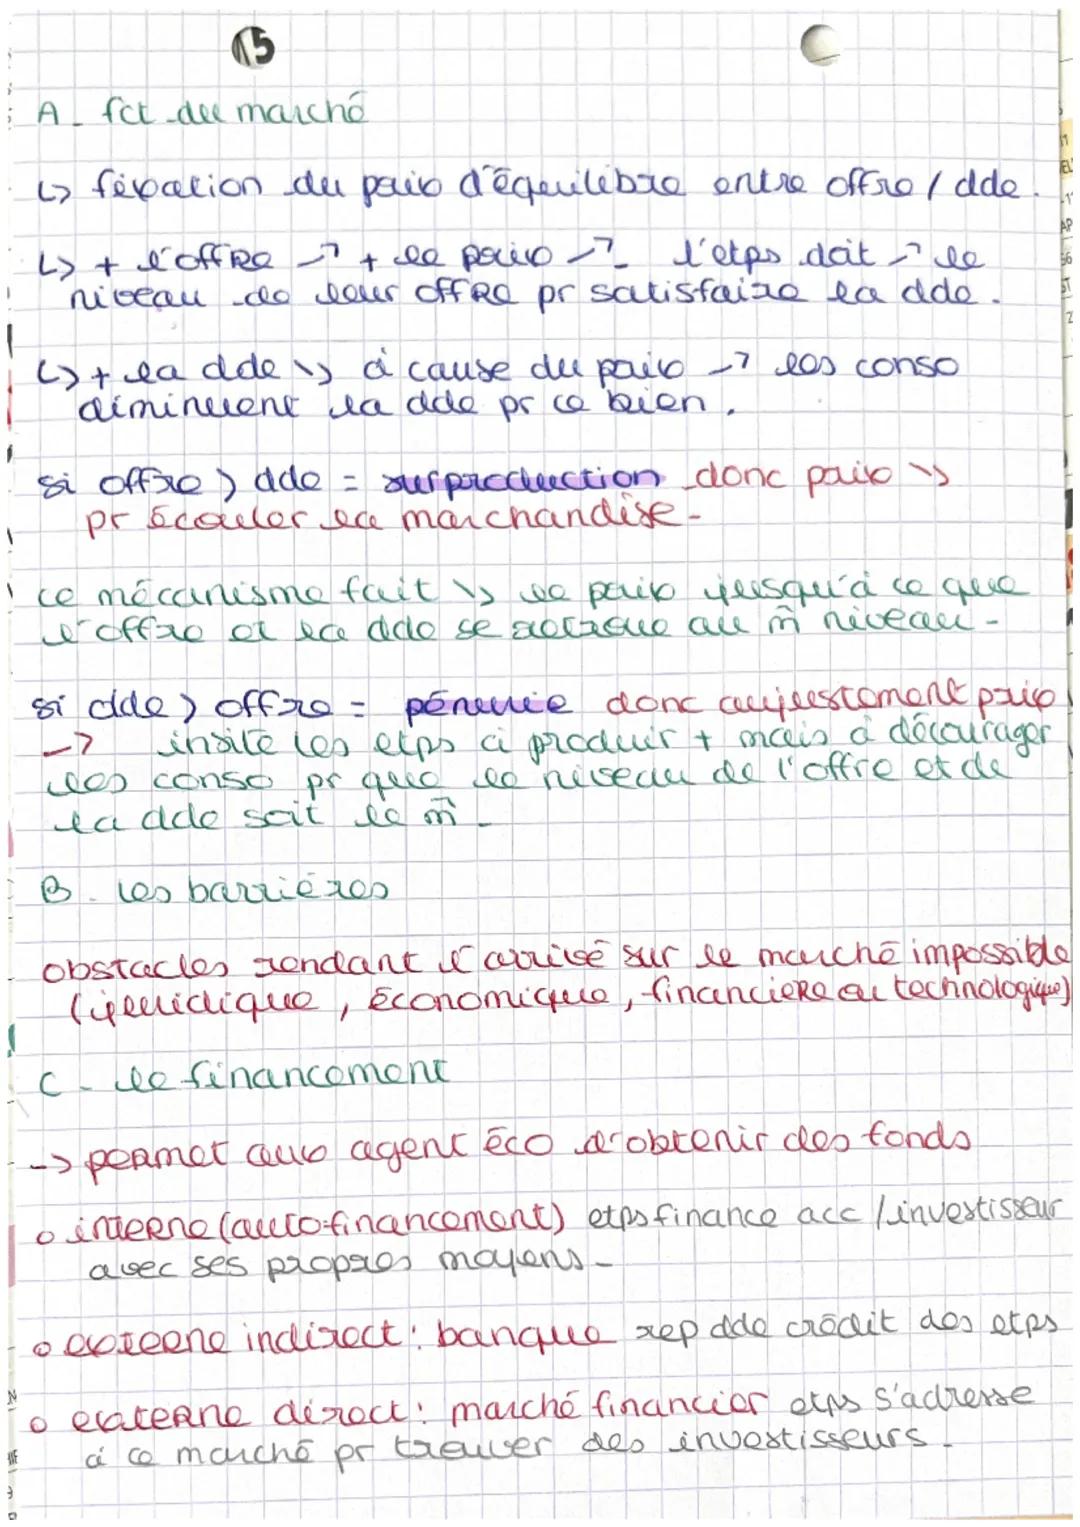 15
A_ fct du marché
↳ fixation du prix d'équilibre entre offre / dde.
↳ + l'offre ↗ + le prix ↗_ l'etps doit ↗ le
niveau de leur offre pr satisfaire la dde.
↳ + la dde ↘ à cause du prix ↗ les conso
diminuent la dde pr ce bien.
si offre > dde = surproduction donc prix ↘
pr écouler la marchandise-
ce mécanisme fait ↘ le prix jusqu'à ce que
l'offre et la dde se retrouve au m̂ niveau-
si dde > offre = pénurie donc aujustement prix
-> insite les etps à produir + mais à décourager
les conso pr que le niveau de l'offre et de
la dde soit le m̂_
B. les barrières
obstacles rendant l'arrivé sur le marché impossible
(juridique, économique, financiere ou technologique)
C- le financement
-> permet aux agent éco d'obtenir des fonds
o interne (auto-financement) etps finance acc / investisseur
avec ses propres moyens-
o externe indirect: banque rep dde crédit des etps
o externe direct: marché financier etps s'adresse
à ce marché pr trouver des investisseurs.